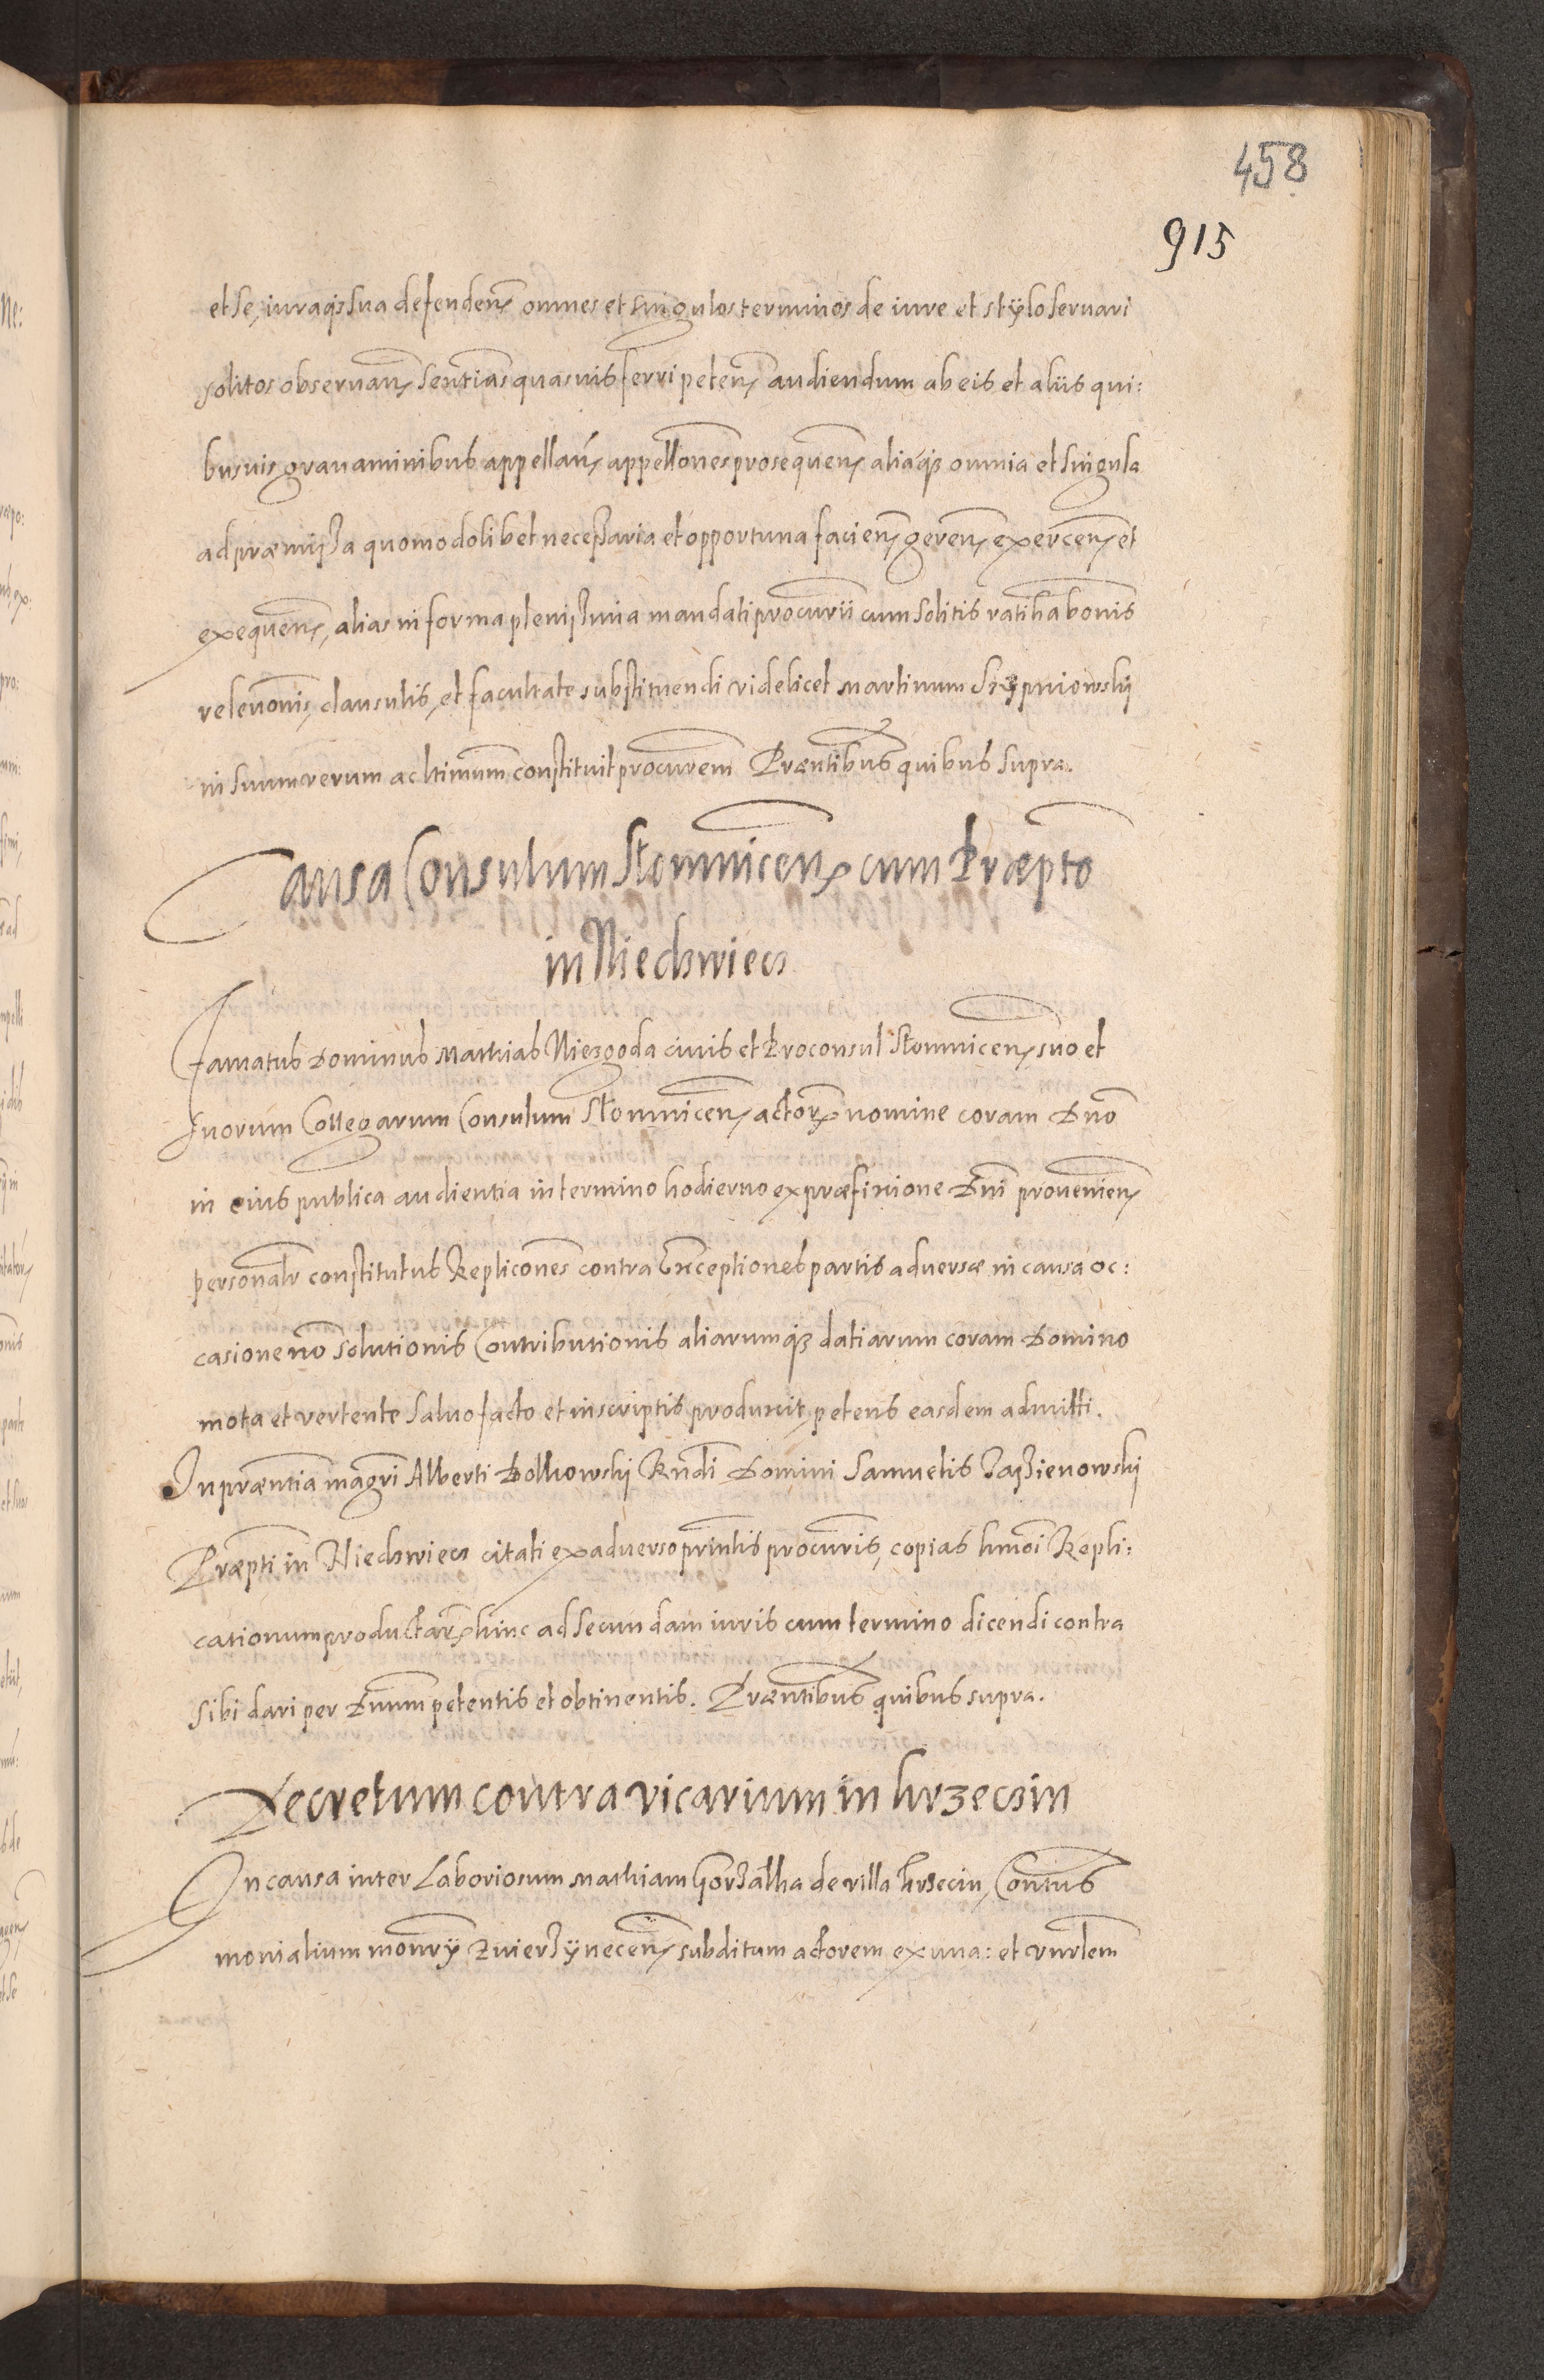 458
915
et se, iuraq₃ sua defendeñ omnes et singulos terminos de iure et stÿlo seruari
solitos obseruañ sentias quasuis ferri peteñ audiendum ab eis et aliis qui:
busuis grauaminibus appellañ appellones prosequeñ aliaq₃ omnia et singula
ad præmissa quomodolibet necessaria et opportuna facieñ gereñ exerceñ et
exequeñ, alias in forma plenissima mandati procurii cum solitis ratihabonis
releuonis, clausulis, et facultate substituendi videlicet Martinum Szÿpniowski
in suum verum ac ltimum constituit procurem Præntibus quibus supra.
Causa Consulum Słomniceñ cum Præpto
in Niedzwiecz
Famatus Dominus Mathias Niezgoda ciuis et Proconsul Słomniceñ, suo et
suorum Collegarum Consulum Słomniceñ actorꝝ nomine coram Dno
in eius publica audientia in termino hodierno ex præfinione Dni prouenieñ
personalr constitutus Replicones contra Exceptiones partis aduersæ in causa oc:
casione no solutionis Contributionis aliarumq₃ datiarum coram Domino
mota et vertente saluo facto et in scriptis produxit, petens easdem admitti.
In præntia magri Alberti Dolkowski Rndi Domini Samuelis Jassienowski
Præpti in Niedzwiecz citati ex aduerso prinlis procuris, copias hmoi Repli:
cationum productarꝝ hinc ad secundam iuris cum termino dicendi contra
sibi dari per Dnum petentis et obtinentis. Præntibus quibus supra.
Decretum contra vicarium in krzeczin
In causa inter Laboriosum Mathiam Gorzalka de villa krzecin, Contus
monialium monrÿ Zwierzÿneceñ subditum actorem ex una: et vnrlem